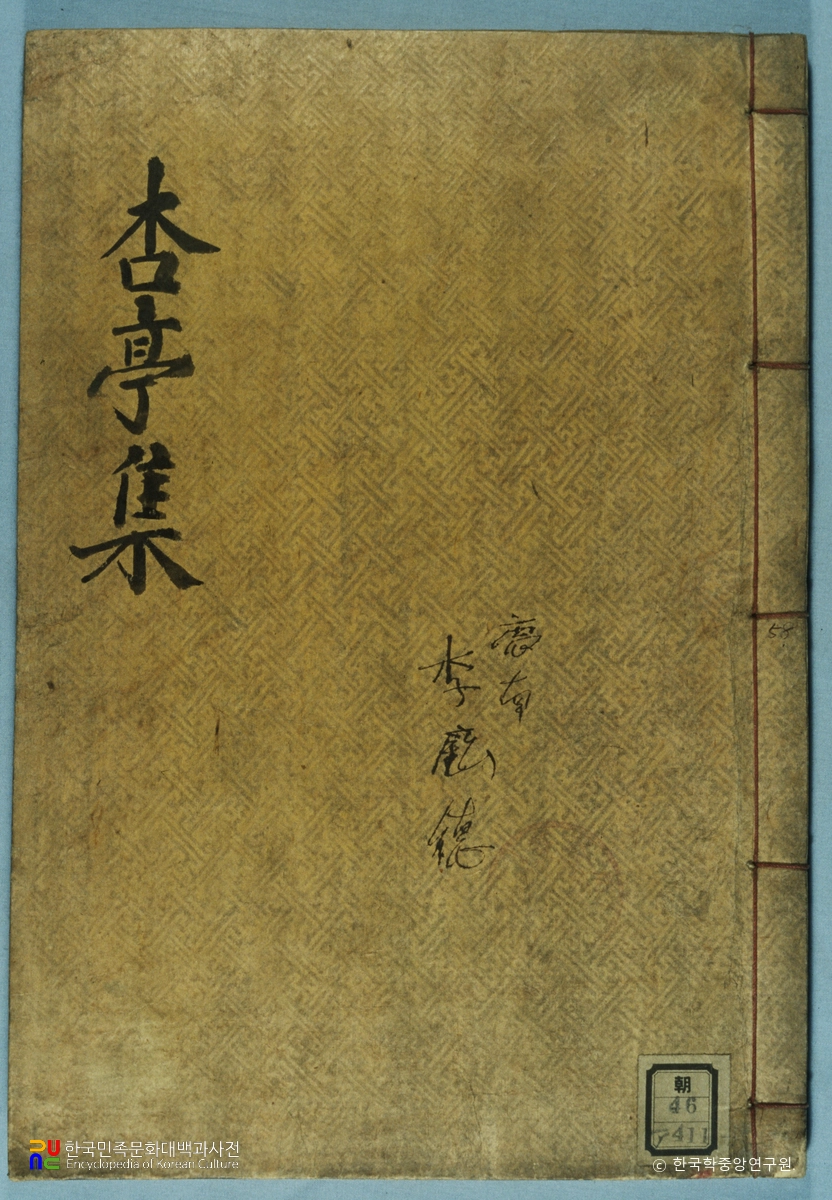 杏亭集
李
朝
46
411
58
한국민족문화대백과사전
Encyclopedia of Korean Culture
© 한국학중앙연구원